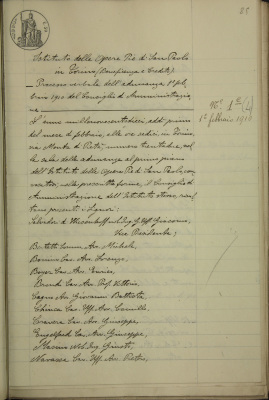 25
Istituto delle Opere Pie di San Paolo
in Torino (Beneficenza e Credito)
Processo verbale dell'adunanza 1° feb-
braio 1910 del Consiglio di Amministrazio-
ne
N° 1
1° febbraio 1910
L'anno millenovecentodieci, addì primo
del mese di febbraio, alle ore sedici, in Torino,
via Monte di Pietà, numero trentadue, nel-
la sala delle adunanze al primo piano
dell'Istituto delle Opere Pie di San Paolo, con-
vocatosi nella prescritta forma, il Consiglio di
Amministrazione dell'Istituto stesso, sono
presenti i Signori:
Vice Presidente;
Bertetti Comm. Avv. Michele,
Bonino Cav. Avv. Lorenzo,
Boyer Cav. Avv. Enrico,
Cav. Prof. Vittorio,
Capra Avv. Giovanni Battista,
Cav. Uff. Avv. Camillo,
Cravera Cav. Avv. Giuseppe,
Engelfred Cav. Avv. Giuseppe,
Nob. Ing.
Navassa Cav. Uff. Avv. Pietro,